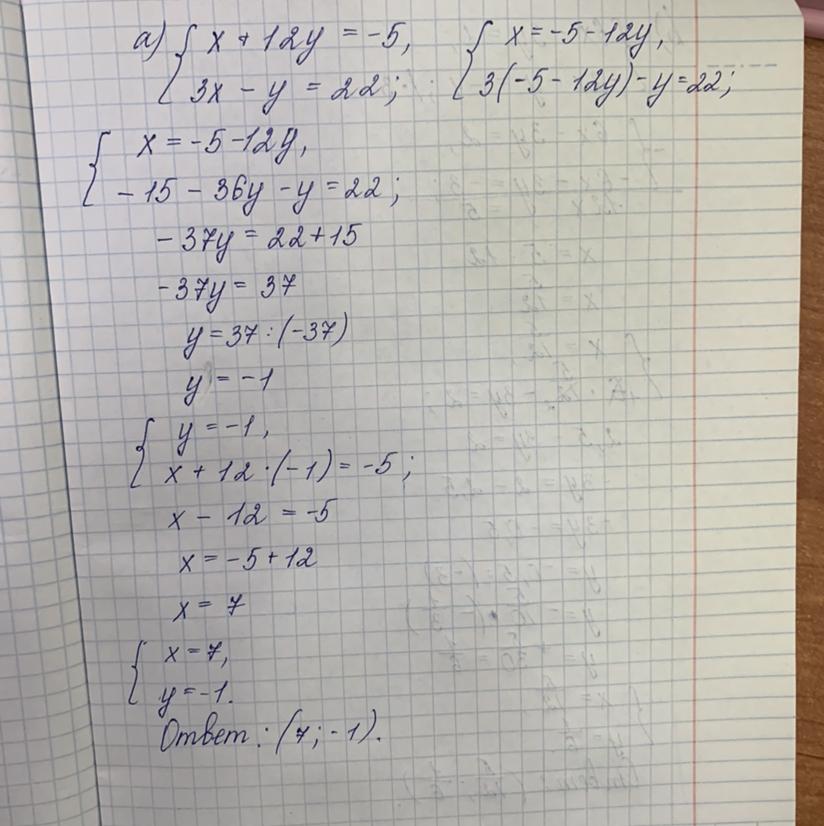 а) { x + 12y = -5, { x = -5 - 12y,
3x - y = 22; 3(-5 - 12y) - y = 22;
{ x = -5 - 12y,
-15 - 36y - y = 22;
-37y = 22 + 15
-37y = 37
y = 37 : (-37)
y = -1
{ y = -1,
x + 12 · (-1) = -5;
x - 12 = -5
x = -5 + 12
x = 7
{ x = 7,
y = -1.
Ответ: (7; -1).